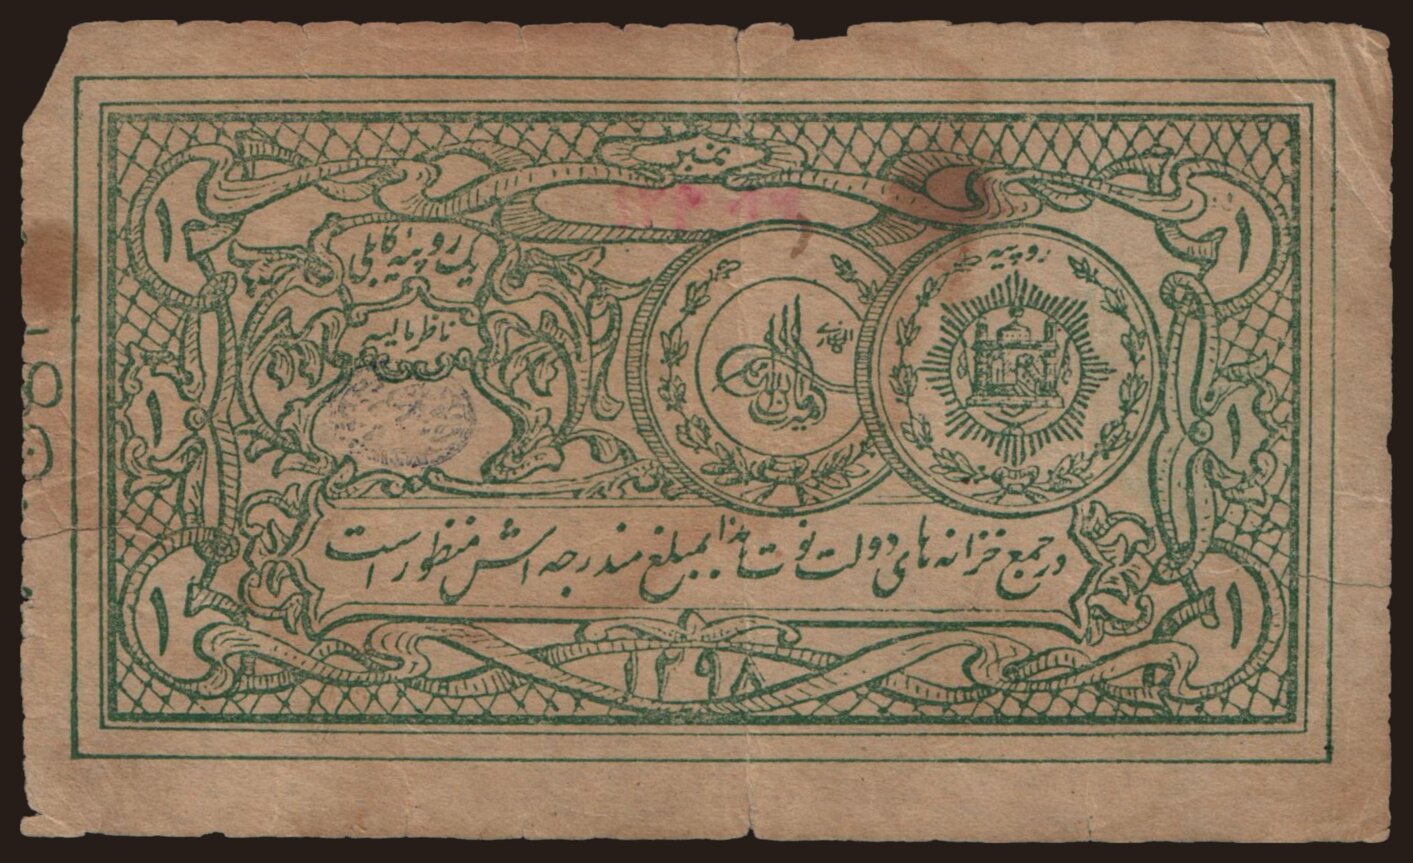 نمبر
۱
۱
یک روپیه کابلی
روپیه
الغازی
ناظر مالیه
۱
۱
در جمیع خزانه های دولت نوت هذا بمبلغ مندرجه اش منظور است
۱
۱
۱۲۹۸